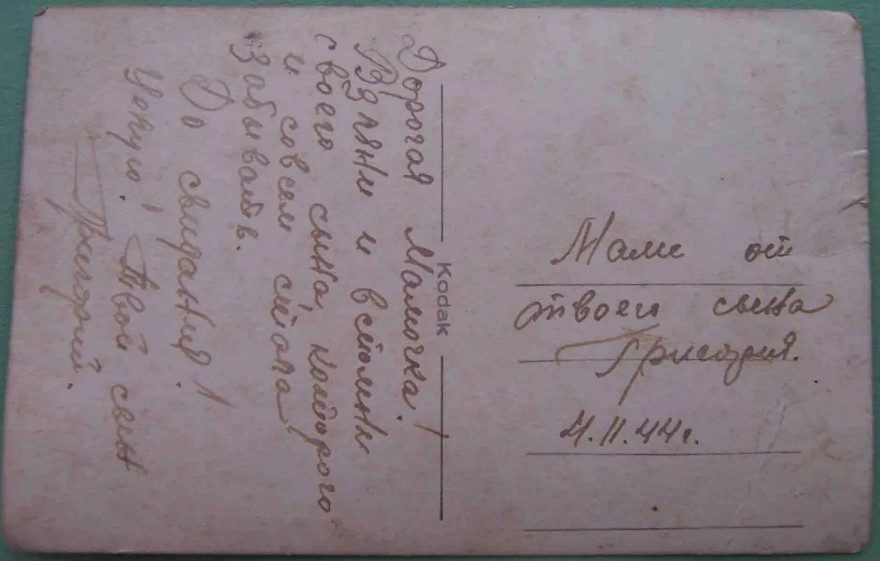 Дорогая Мамочка!
Взгляни и вспомни
своего сына, которого
и совсем стала
забывать.
До свидания!
Целую. Твой сын
Григорий.
Kodak
Маме от
твоего сына
Григория.
4.II.44г.